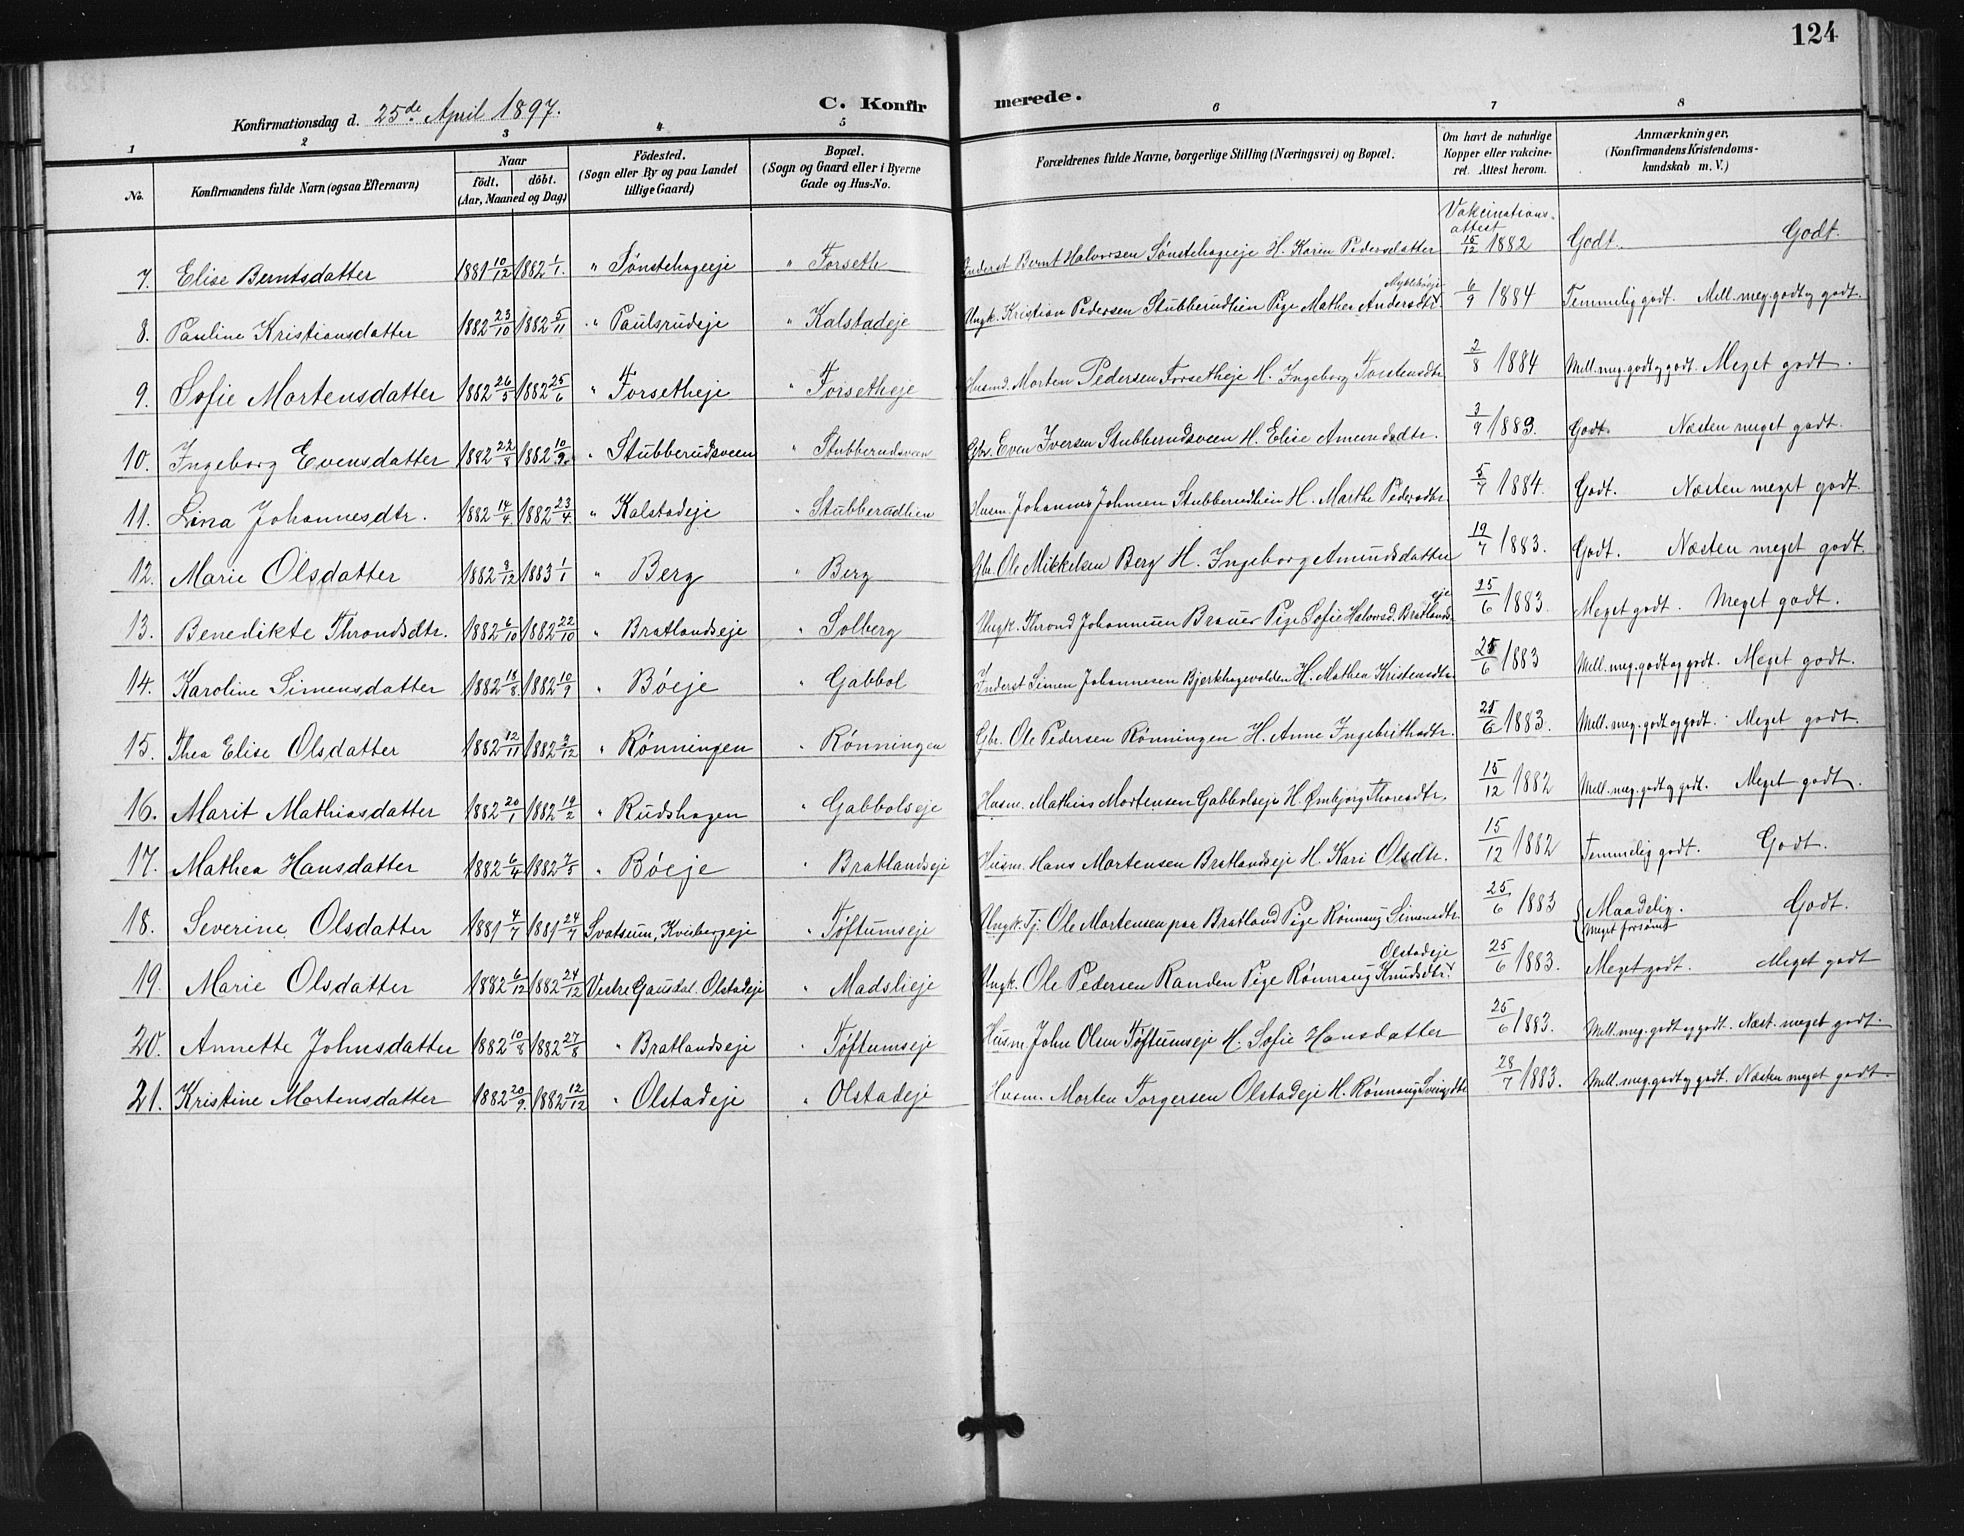 124
C. Konfirmerede.
Konfirmationsdag d. 25de April 1897.
1 2 3 4 5 6 7 8
No. Konfirmandens fulde Navn (ogsaa Efternavn) Naar født. døbt. (Aar, Maaned og Dag) Fødested. (Sogn eller By og paa Landet tillige Gaard) Bopæl. (Sogn og Gaard eller i Byerne Gade og Hus-No. Forældrenes fulde Navne, borgerlige Stilling (Næringsvei) og Bopæl. Om havt de naturlige Kopper eller vakcineret. Attest herom. Anmærkninger, (Konfirmandens Kristendomskundskab m. V.)
Vakcinationsattest
7. Elise Berntsdatter 1881 10/12 1882 1/1. " Sønstehageeje " Forseth Inderst Bernt Halvorsen Sønstehageeje H. Karen Pedersdatter 15/12 1882 Godt. Godt.
8. Pauline Kristiansdatter 1882 23/10 1882 5/11 " Paulsrudeje " Kalstadeje Ungk. Kristian Pedersen Stubberudlien Pige Mathea Andersdtr 6/9 1884 Temmelig godt. Mell. meg. godt og godt.
9. Sofie Mortensdatter 1882 26/5 1882 25/6 " Forsetheje " Forsetheje Husmd. Morten Pedersen Forsetheje H. Ingeborg Torstensdtr 2/8 1884 Mell. meg. godt og godt. Meget godt.
10. Ingeborg Evensdatter 1882 22/8 1882 10/9. " Stubberudsveen " Stubberudsveen Gbr. Even Iversen Stubberudsveen H. Elise Amundsdtr. 3/9 1883. Godt. Næsten meget godt.
11. Lina Johannesdtr. 1882 14/4. 1882 23/4 " Kalstadeje " Stubberudlien Husm. Johannes Johnsen Stubberudlien H. Marthe Pedersdtr 5/7 1884. Godt. Næsten meget godt
12. Marie Olsdatter 1882 3/12 1883 1/1 " Berg " Berg Gbr. Ole Mikkelsen Berg H. Ingeborg Amundsdatter 19/7 1883. Godt. Næsten meget godt.
13. Benedikte Throndsdtr. 1882 6/10 1882 22/10 " Bratlandseje " Solberg Ungk. Thrond Johannesen Brauer Pige Sofie Halvorsd. Bratlandseje 25/6 1883. Meget godt. Meget godt.
14. Karoline Simensdatter 1882 18/8 1882 10/9 " Bøeje " Gabbol Inderst Simen Johannesen Bjerkhagevolden H. Mathea Kristensdtr. 25/6 1883 Mell. meg. godt og godt. Meget godt.
15. Thea Elise Olsdatter 1882 12/11 1882 3/12 " Rønningen " Rønningen Gbr. Ole Pedersen Rønningen H. Anne Ingebrithsdtr. 25/6 1883. Mell. meg. godt og godt. Meget godt.
16. Marit Mathiasdatter 1882 20/1 1882 19/2 " Rudshagen " Gabbolseje Husm. Mathias Mortensen Gabbolseje H. Ømbjørg Thoresdtr. 15/12 1882 Mell. meg. godt og godt. Meget godt.
17. Mathea Hansdatter 1882 6/4 1882 7/5 " Bøeje " Bratlandseje Husm. Hans Mortensen Bratlandseje H. Kari Olsdtr. 15/12 1882 Temmelig godt. Godt.
18. Severine Olsdatter 1881 4/7 1881 24/7 Svatsum, Kvisbergeje " Tøftumseje Ungk. Tj. Ole Mortensen paa Bratland Pige Rønnaug Simensdtr. 25/6 1883 Maadelig. Meget forsømt Godt.
19. Marie Olsdatter 1882 6/12 1882 24/12 Vestre Gausdal. Olstadeje " Madslieje Ungk. Ole Pedersen Randen Pige Rønnaug Knudsdtr. Olstadeje 25/6 1883. Meget godt. Meget godt
20. Annette Johnsdatter 1882 10/8 1882 27/8 " Bratlandseje " Tøftumseje Husm. John Olsen Tøftumseje H. Sofie Hansdatter 25/6 1883. Mell. meg. godt og godt. Næst. meget godt.
21. Kristine Mortensdatter 1882 20/9. 1882 12/12 " Olstadeje " Olstadeje Husm. Morten Torgersen Olstadeje H. Rønnaug Sveinsdtr 28/7 1883. Mell. meg. godt og godt. Næsten meget godt.